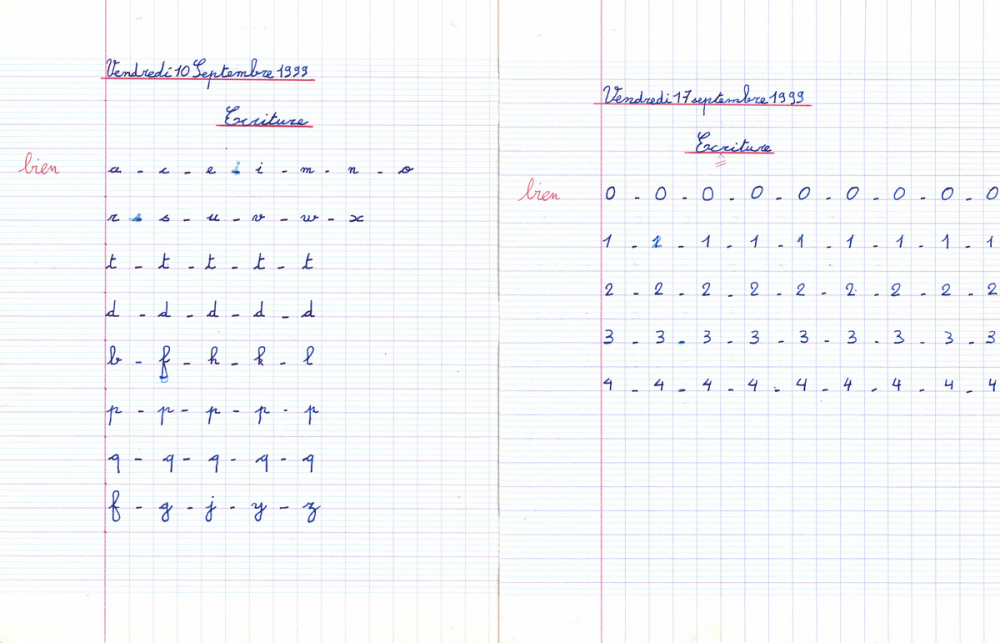 Vendredi 10 Septembre 1999
Ecriture
bien
a - c - e - i - m - n - o
r - s - u - v - w - x
t - t - t - t - t
d - d - d - d - d
b - f - h - k - l
p - p - p - p - p
q - q - q - q - q
f - g - j - y - z
Vendredi 17 septembre 1999
Ecriture
bien
0 - 0 - 0 - 0 - 0 - 0 - 0 - 0 - 0
1 - 1 - 1 - 1 - 1 - 1 - 1 - 1 - 1
2 - 2 - 2 - 2 - 2 - 2 - 2 - 2 - 2
3 - 3 - 3 - 3 - 3 - 3 - 3 - 3 - 3
4 - 4 - 4 - 4 - 4 - 4 - 4 - 4 - 4